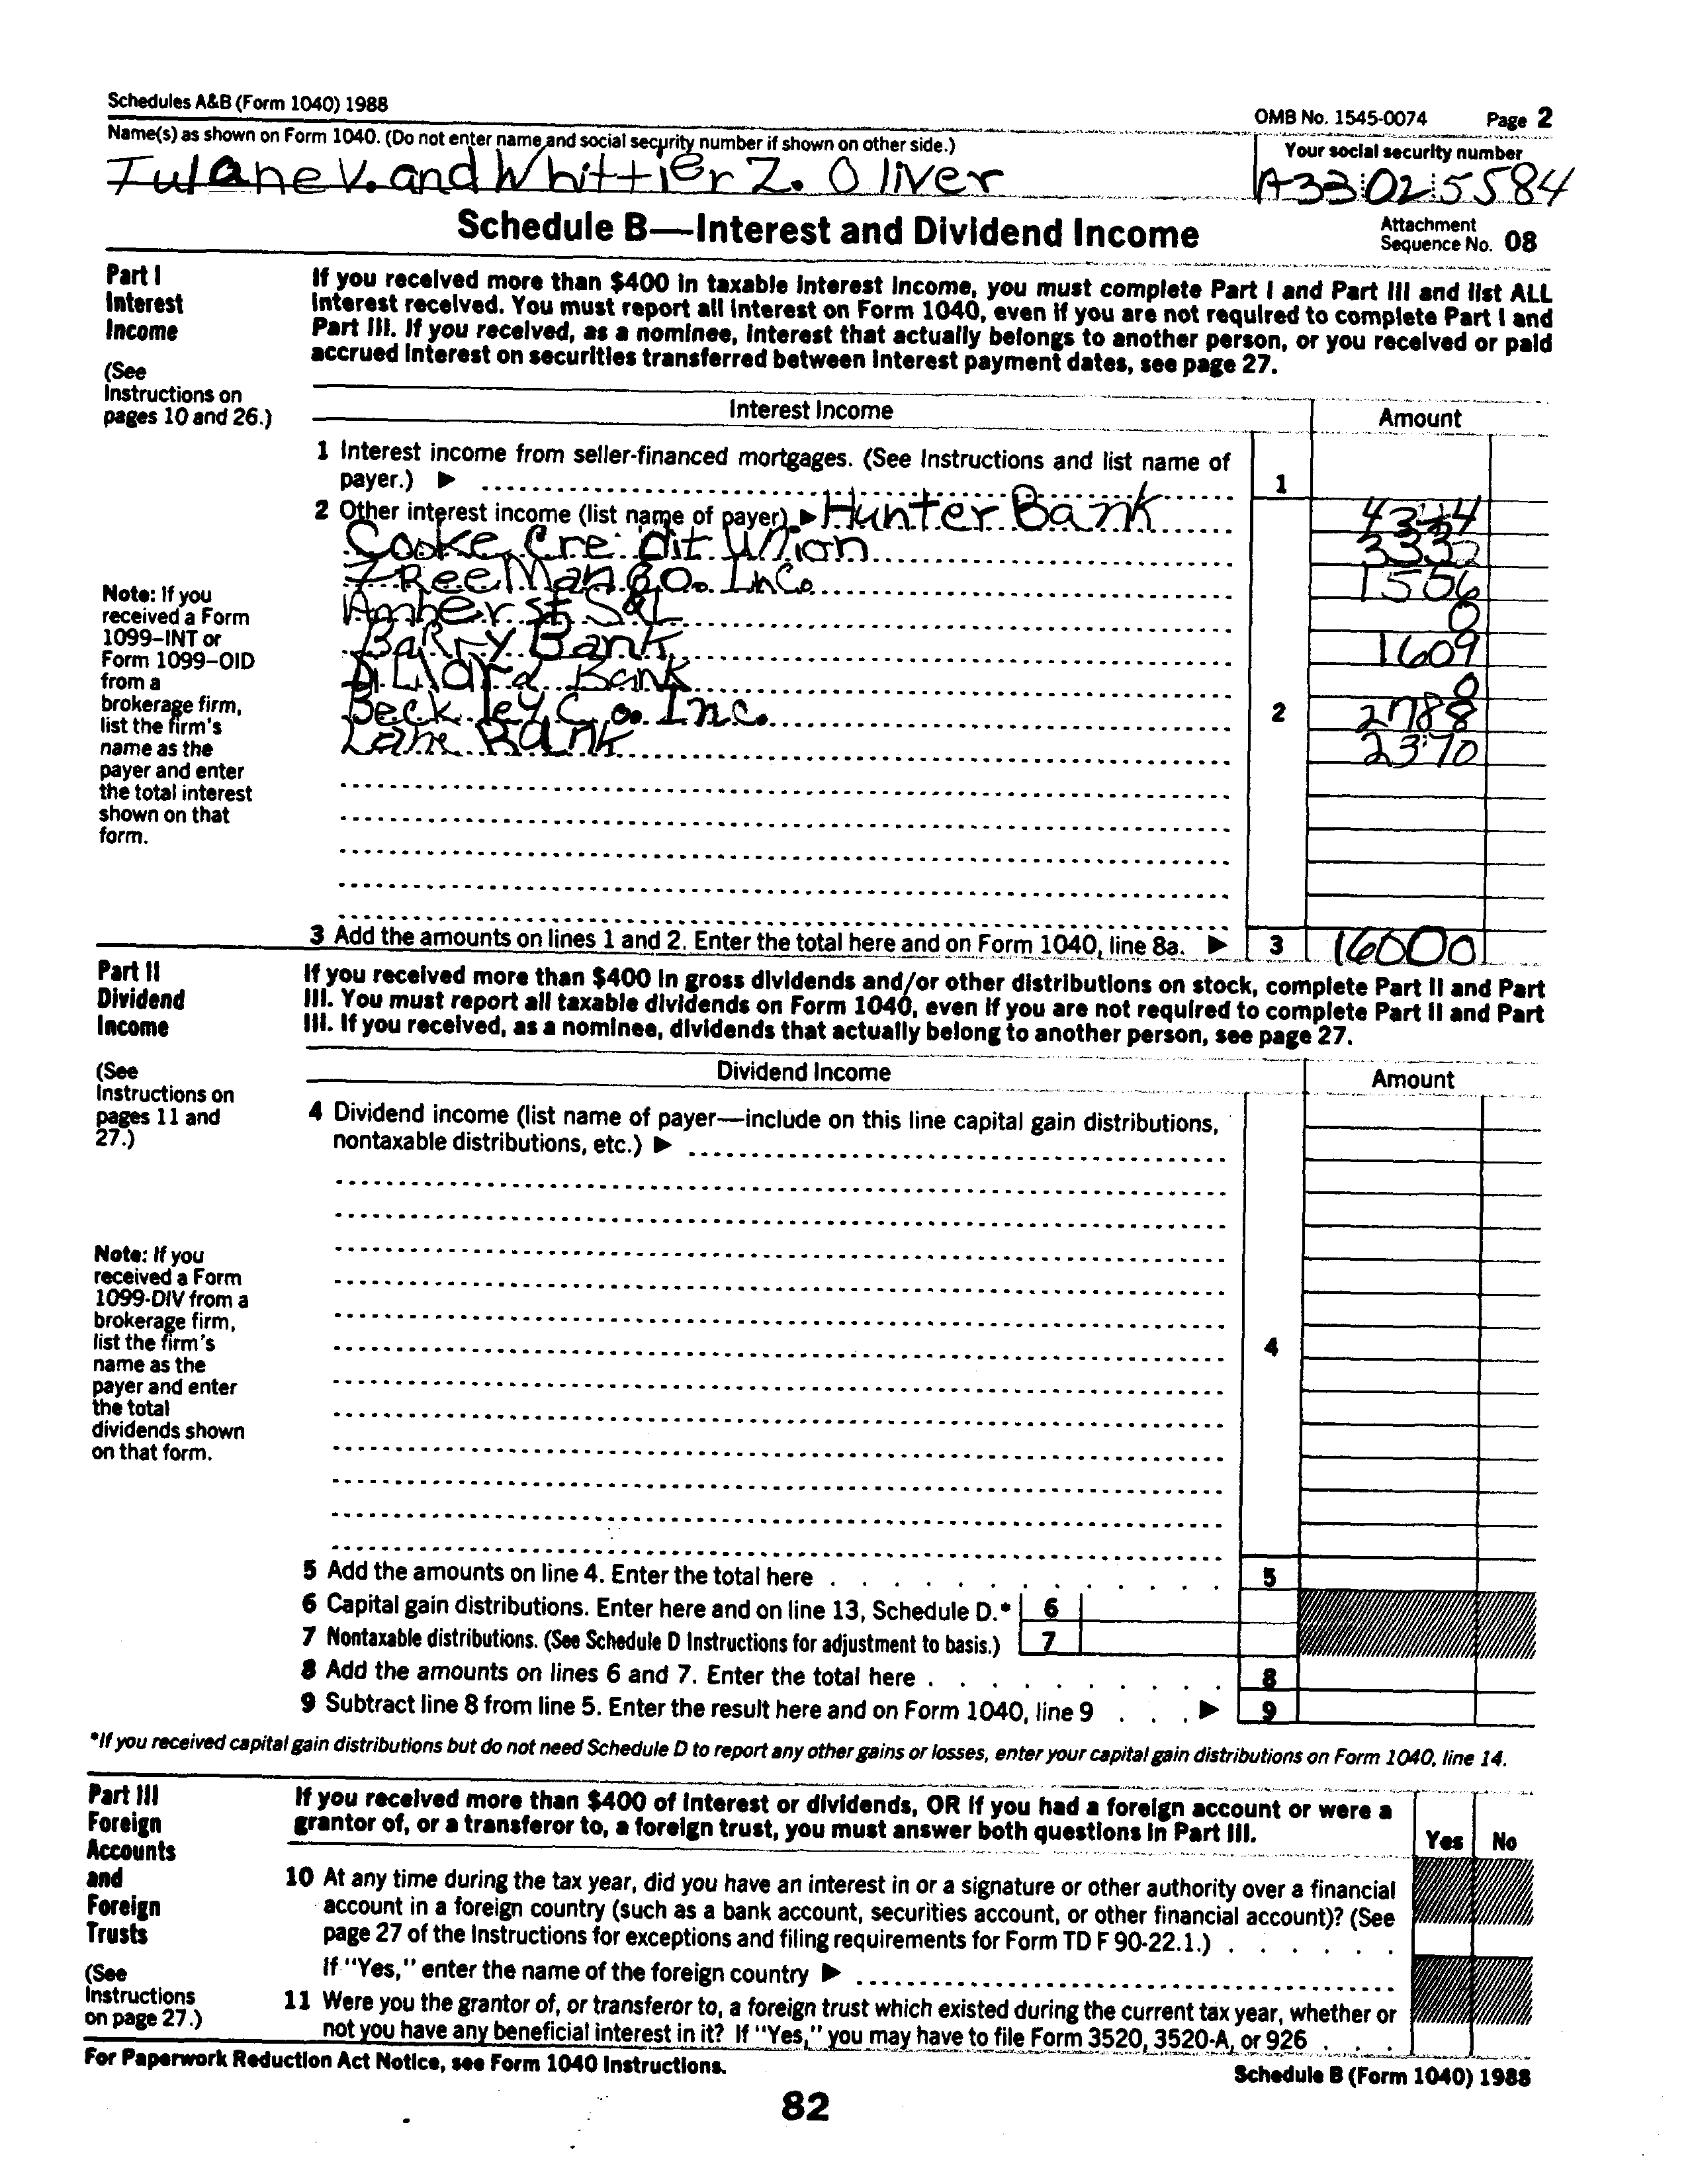 Schedules A&B (Form 1040) 1988
OMB No. 1545-0074 Page 2
Name(s) as shown on Form 1040. (Do not enter name and social security number if shown on other side.)
Your social security number
Tulane V. and Whittier Z. Oliver
A33 02 5584
Schedule B—Interest and Dividend Income
Attachment
Sequence No. 08
Part I
Interest
Income
(See
Instructions on
pages 10 and 26.)
If you received more than $400 in taxable interest income, you must complete Part I and Part III and list ALL
interest received. You must report all interest on Form 1040, even if you are not required to complete Part I and
Part III. If you received, as a nominee, interest that actually belongs to another person, or you received or paid
accrued interest on securities transferred between interest payment dates, see page 27.
Interest Income
Amount
1 Interest income from seller-financed mortgages. (See Instructions and list name of
payer.) ▶
1
2 Other interest income (list name of payer) ▶ Hunter Bank 4344
Cooke Credit Union 3332
Freeman Co. Inc. 1556
Amherst S&L 0
Barry Bank 1609
Dillard Bank 0
Beckley Co. Inc. 2788
2
Lane Bank 2370
Note: If you
received a Form
1099–INT or
Form 1099–OID
from a
brokerage firm,
list the firm's
name as the
payer and enter
the total interest
shown on that
form.
3 Add the amounts on lines 1 and 2. Enter the total here and on Form 1040, line 8a. ▶ 3 16000
Part II
Dividend
Income
(See
Instructions on
pages 11 and
27.)
If you received more than $400 in gross dividends and/or other distributions on stock, complete Part II and Part
III. You must report all taxable dividends on Form 1040, even if you are not required to complete Part II and Part
III. If you received, as a nominee, dividends that actually belong to another person, see page 27.
Dividend Income
Amount
4 Dividend income (list name of payer—include on this line capital gain distributions,
nontaxable distributions, etc.) ▶
4
Note: If you
received a Form
1099-DIV from a
brokerage firm,
list the firm's
name as the
payer and enter
the total
dividends shown
on that form.
5 Add the amounts on line 4. Enter the total here . . . . . . . . . . . 5
6 Capital gain distributions. Enter here and on line 13, Schedule D.* 6
7 Nontaxable distributions. (See Schedule D Instructions for adjustment to basis.) 7
8 Add the amounts on lines 6 and 7. Enter the total here . . . . . . . . . 8
9 Subtract line 8 from line 5. Enter the result here and on Form 1040, line 9 . . . ▶ 9
*If you received capital gain distributions but do not need Schedule D to report any other gains or losses, enter your capital gain distributions on Form 1040, line 14.
Part III
Foreign
Accounts
and
Foreign
Trusts
(See
Instructions
on page 27.)
If you received more than $400 of interest or dividends, OR if you had a foreign account or were a
grantor of, or a transferor to, a foreign trust, you must answer both questions in Part III.
Yes No
10 At any time during the tax year, did you have an interest in or a signature or other authority over a financial
account in a foreign country (such as a bank account, securities account, or other financial account)? (See
page 27 of the Instructions for exceptions and filing requirements for Form TD F 90-22.1.) . . . . . .
If "Yes," enter the name of the foreign country ▶
11 Were you the grantor of, or transferor to, a foreign trust which existed during the current tax year, whether or
not you have any beneficial interest in it? If "Yes," you may have to file Form 3520, 3520-A, or 926 . . .
For Paperwork Reduction Act Notice, see Form 1040 Instructions.
Schedule B (Form 1040) 1988
82